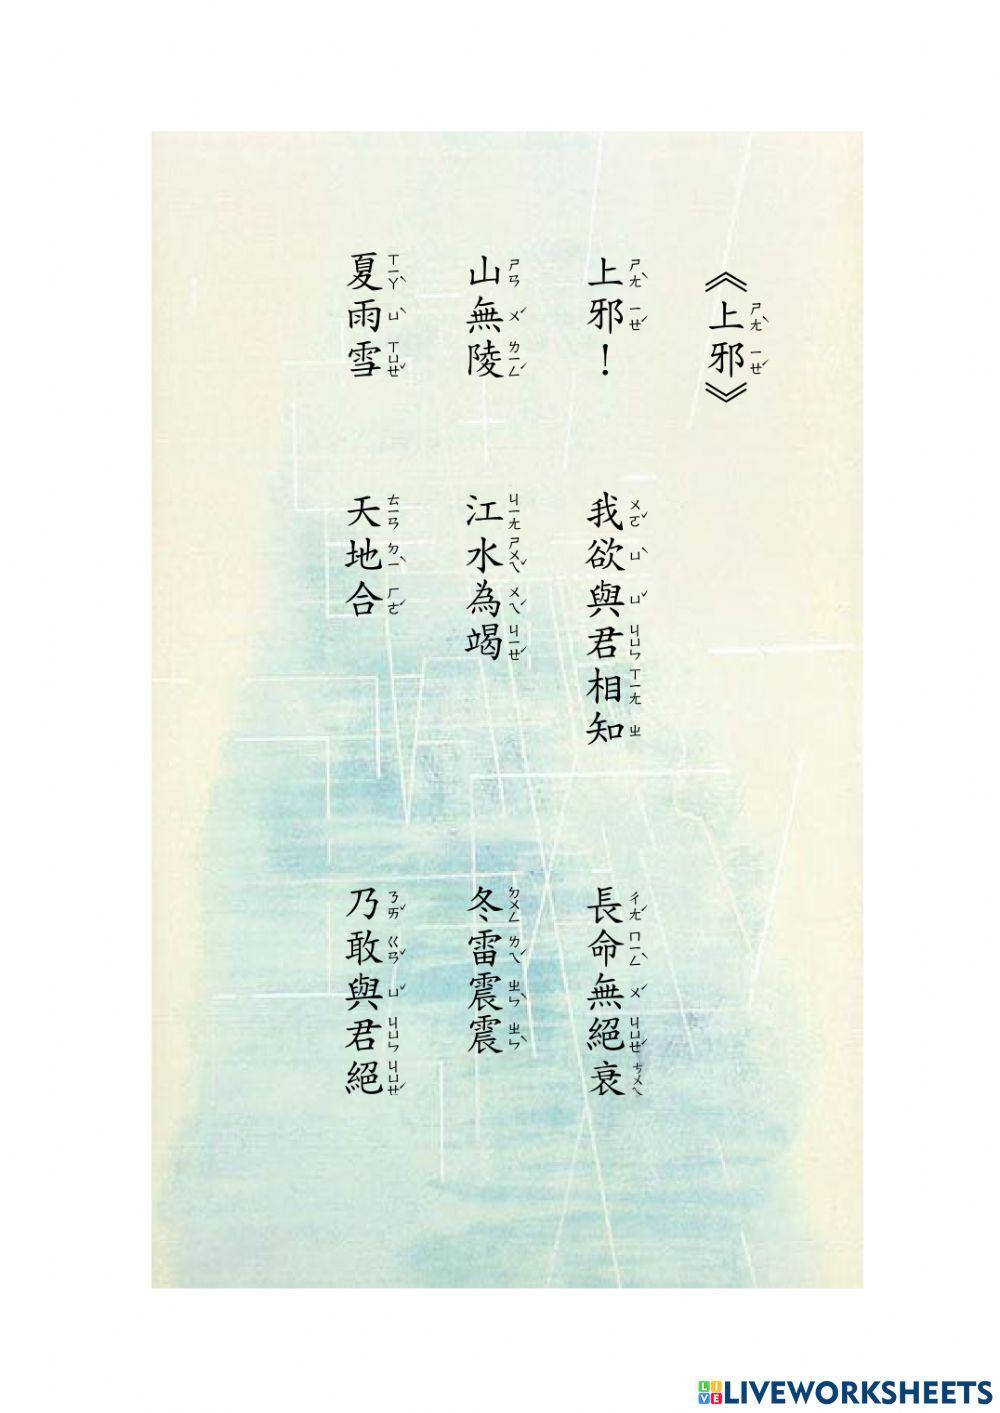 《上邪》
上邪！ 我欲與君相知 長命無絕衰
山無陵 江水為竭 冬雷震震
夏雨雪 天地合 乃敢與君絕
LIVEWORKSHEETS